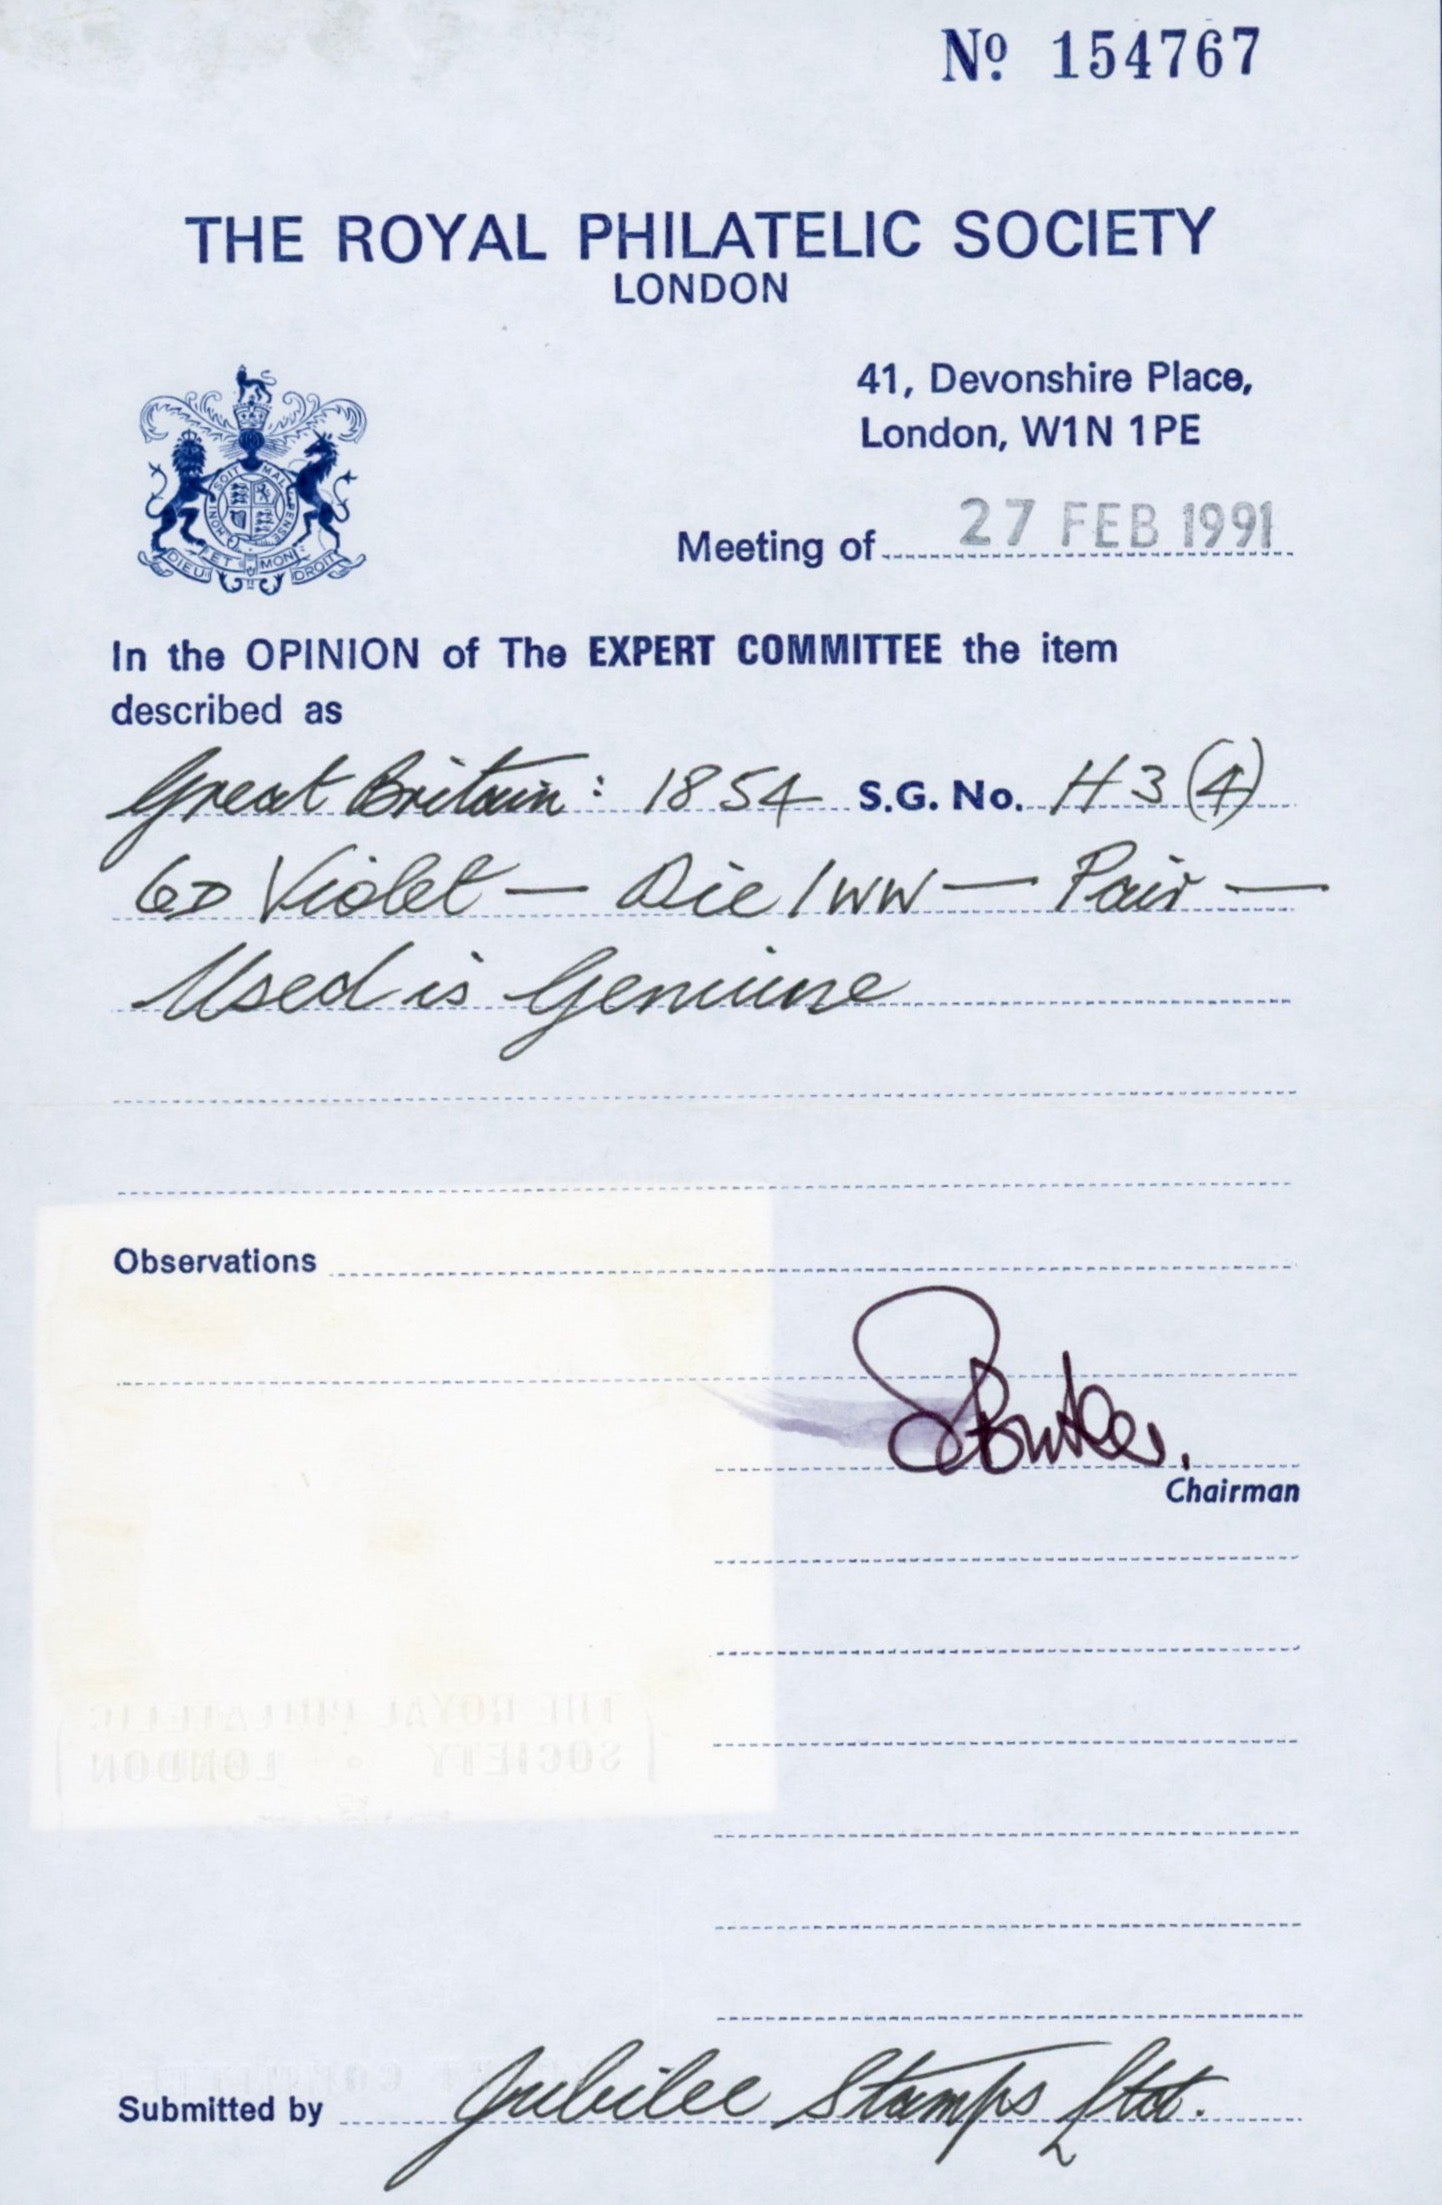 No. 154767
THE ROYAL PHILATELIC SOCIETY
LONDON
41, Devonshire Place,
London, W1N 1PE
HONI SOIT MAL PENSE
DIEU ET MON DROIT
Meeting of 27 FEB 1991
In the OPINION of The EXPERT COMMITTEE the item
described as
Great Britain: 1854 S.G. No. H3(4)
6D Violet — Die 1 WW — Pair —
Used is Genuine
Observations
Butler.
Chairman
THE ROYAL PHILATELIC
SOCIETY • LONDON
Submitted by Jubilee Stamps Ltd.